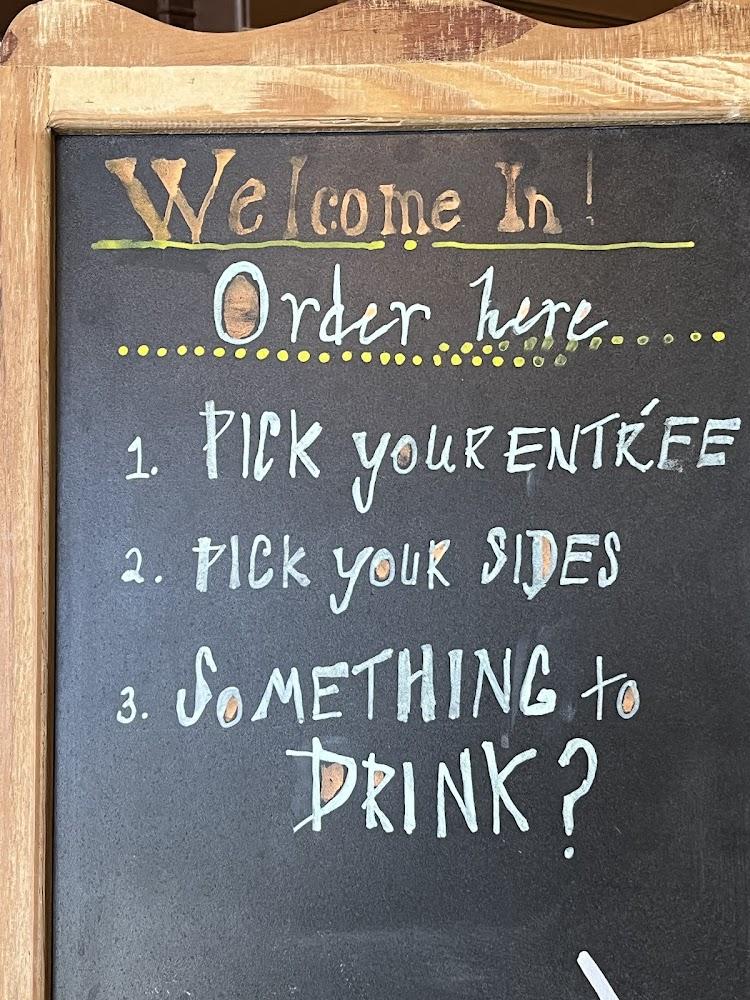 Welcome In!
Order here
1. PICK YOUR ENTRÉE
2. PICK YOUR SIDES
3. SOMETHING to
DRINK?